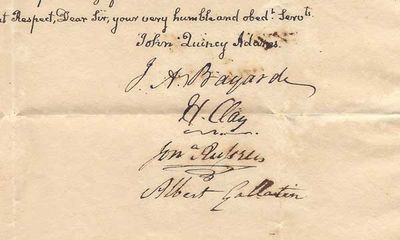 t Respect, Dear Sir, your very humble and obed.t Serv.ts
John Quincy Adams.
J. A. Bayard
H. Clay
Jon.a Russell
Albert Gallatin